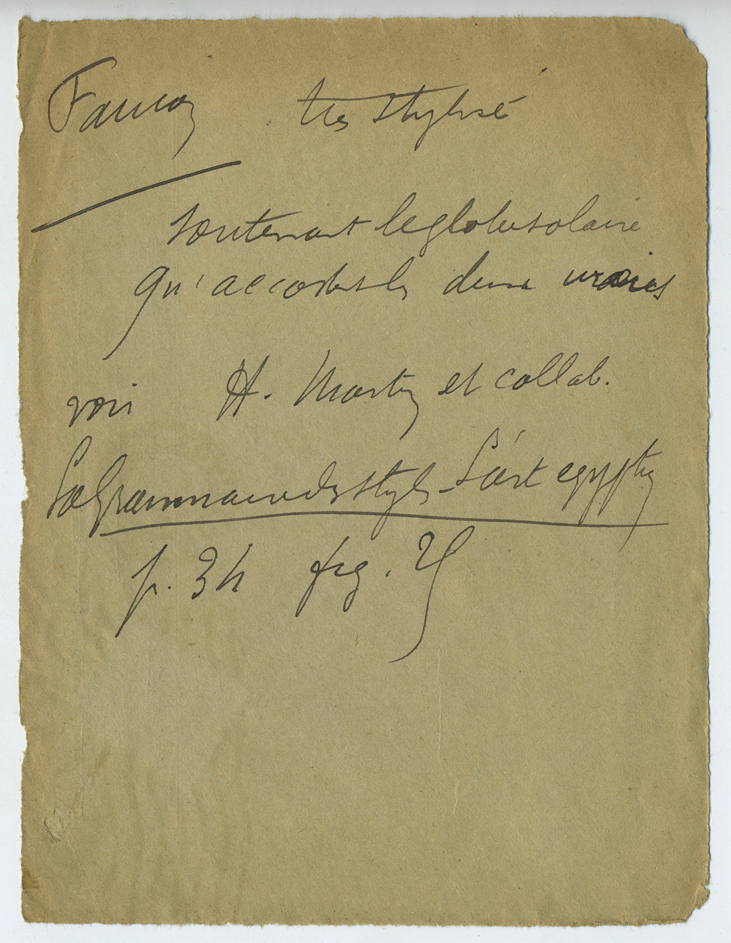 Faucon très stylisé
soutenant le globe solaire
qu'accostent les deux uraeus
voir H. Martin et collab.
La Grammaire des styles - L'art egyptien
p. 34 fig.